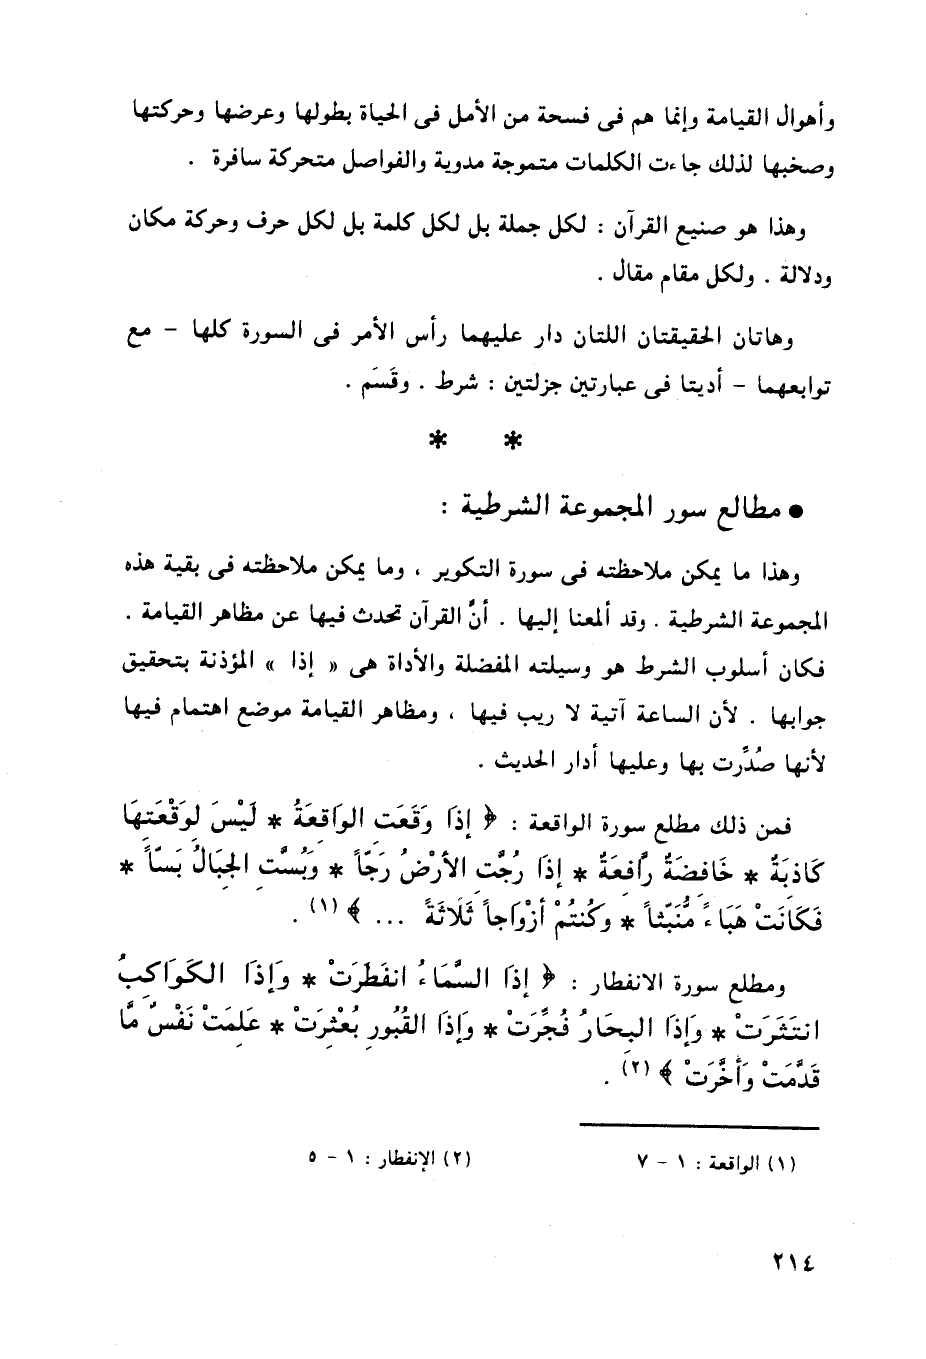 وأهوال القيامة وإنما هم فى فسحة من الأمل فى الحياة بطولها وعرضها وحركتها
وصخبها لذلك جاءت الكلمات متموجة مدوية والفواصل متحركة سافرة .
وهذا هو صنيع القرآن : لكل جملة بل لكل كلمة بل لكل حرف وحركة مكان
ودلالة . ولكل مقام مقال .
وهاتان الحقيقتان اللتان دار عليهما رأس الأمر فى السورة كلها – مع
توابعهما – أديتا فى عبارتين جزلتين : شرط . وقَسَم .
* *
● مطالع سور المجموعة الشرطية :
وهذا ما يمكن ملاحظته فى سورة التكوير ، وما يمكن ملاحظته فى بقية هذه
المجموعة الشرطية . وقد ألمعنا إليها . أنَّ القرآن تحدث فيها عن مظاهر القيامة .
فكان أسلوب الشرط هو وسيلته المفضلة والأداة هى « إذا » المؤذنة بتحقيق
جوابها . لأن الساعة آتية لا ريب فيها ، ومظاهر القيامة موضع اهتمام فيها
لأنها صُدِّرت بها وعليها أدار الحديث .
فمن ذلك مطلع سورة الواقعة : ﴿ إِذَا وَقَعَتِ الوَاقِعَةُ * لَيْسَ لِوَقْعَتِهَا
كَاذِبَةٌ * خَافِضَةٌ رَّافِعَةٌ * إِذَا رُجَّتِ الأَرْضُ رَجّاً * وَبُسَّتِ الجِبَالُ بَسّاً *
فَكَانَتْ هَبَاءً مُّنْبَثّاً * وَكُنتُمْ أَزْوَاجاً ثَلَاثَةً ... ﴾ (١) .
ومطلع سورة الانفطار : ﴿ إِذَا السَّمَاءُ انفَطَرَتْ * وَإِذَا الكَوَاكِبُ
انتَثَرَتْ * وَإِذَا البِحَارُ فُجِّرَتْ * وَإِذَا القُبُورُ بُعْثِرَتْ * عَلِمَتْ نَفْسٌ مَّا
قَدَّمَتْ وَأَخَّرَتْ ﴾ (٢) .
(١) الواقعة : ١ – ٧ (٢) الإنفطار : ١ – ٥
٢١٤